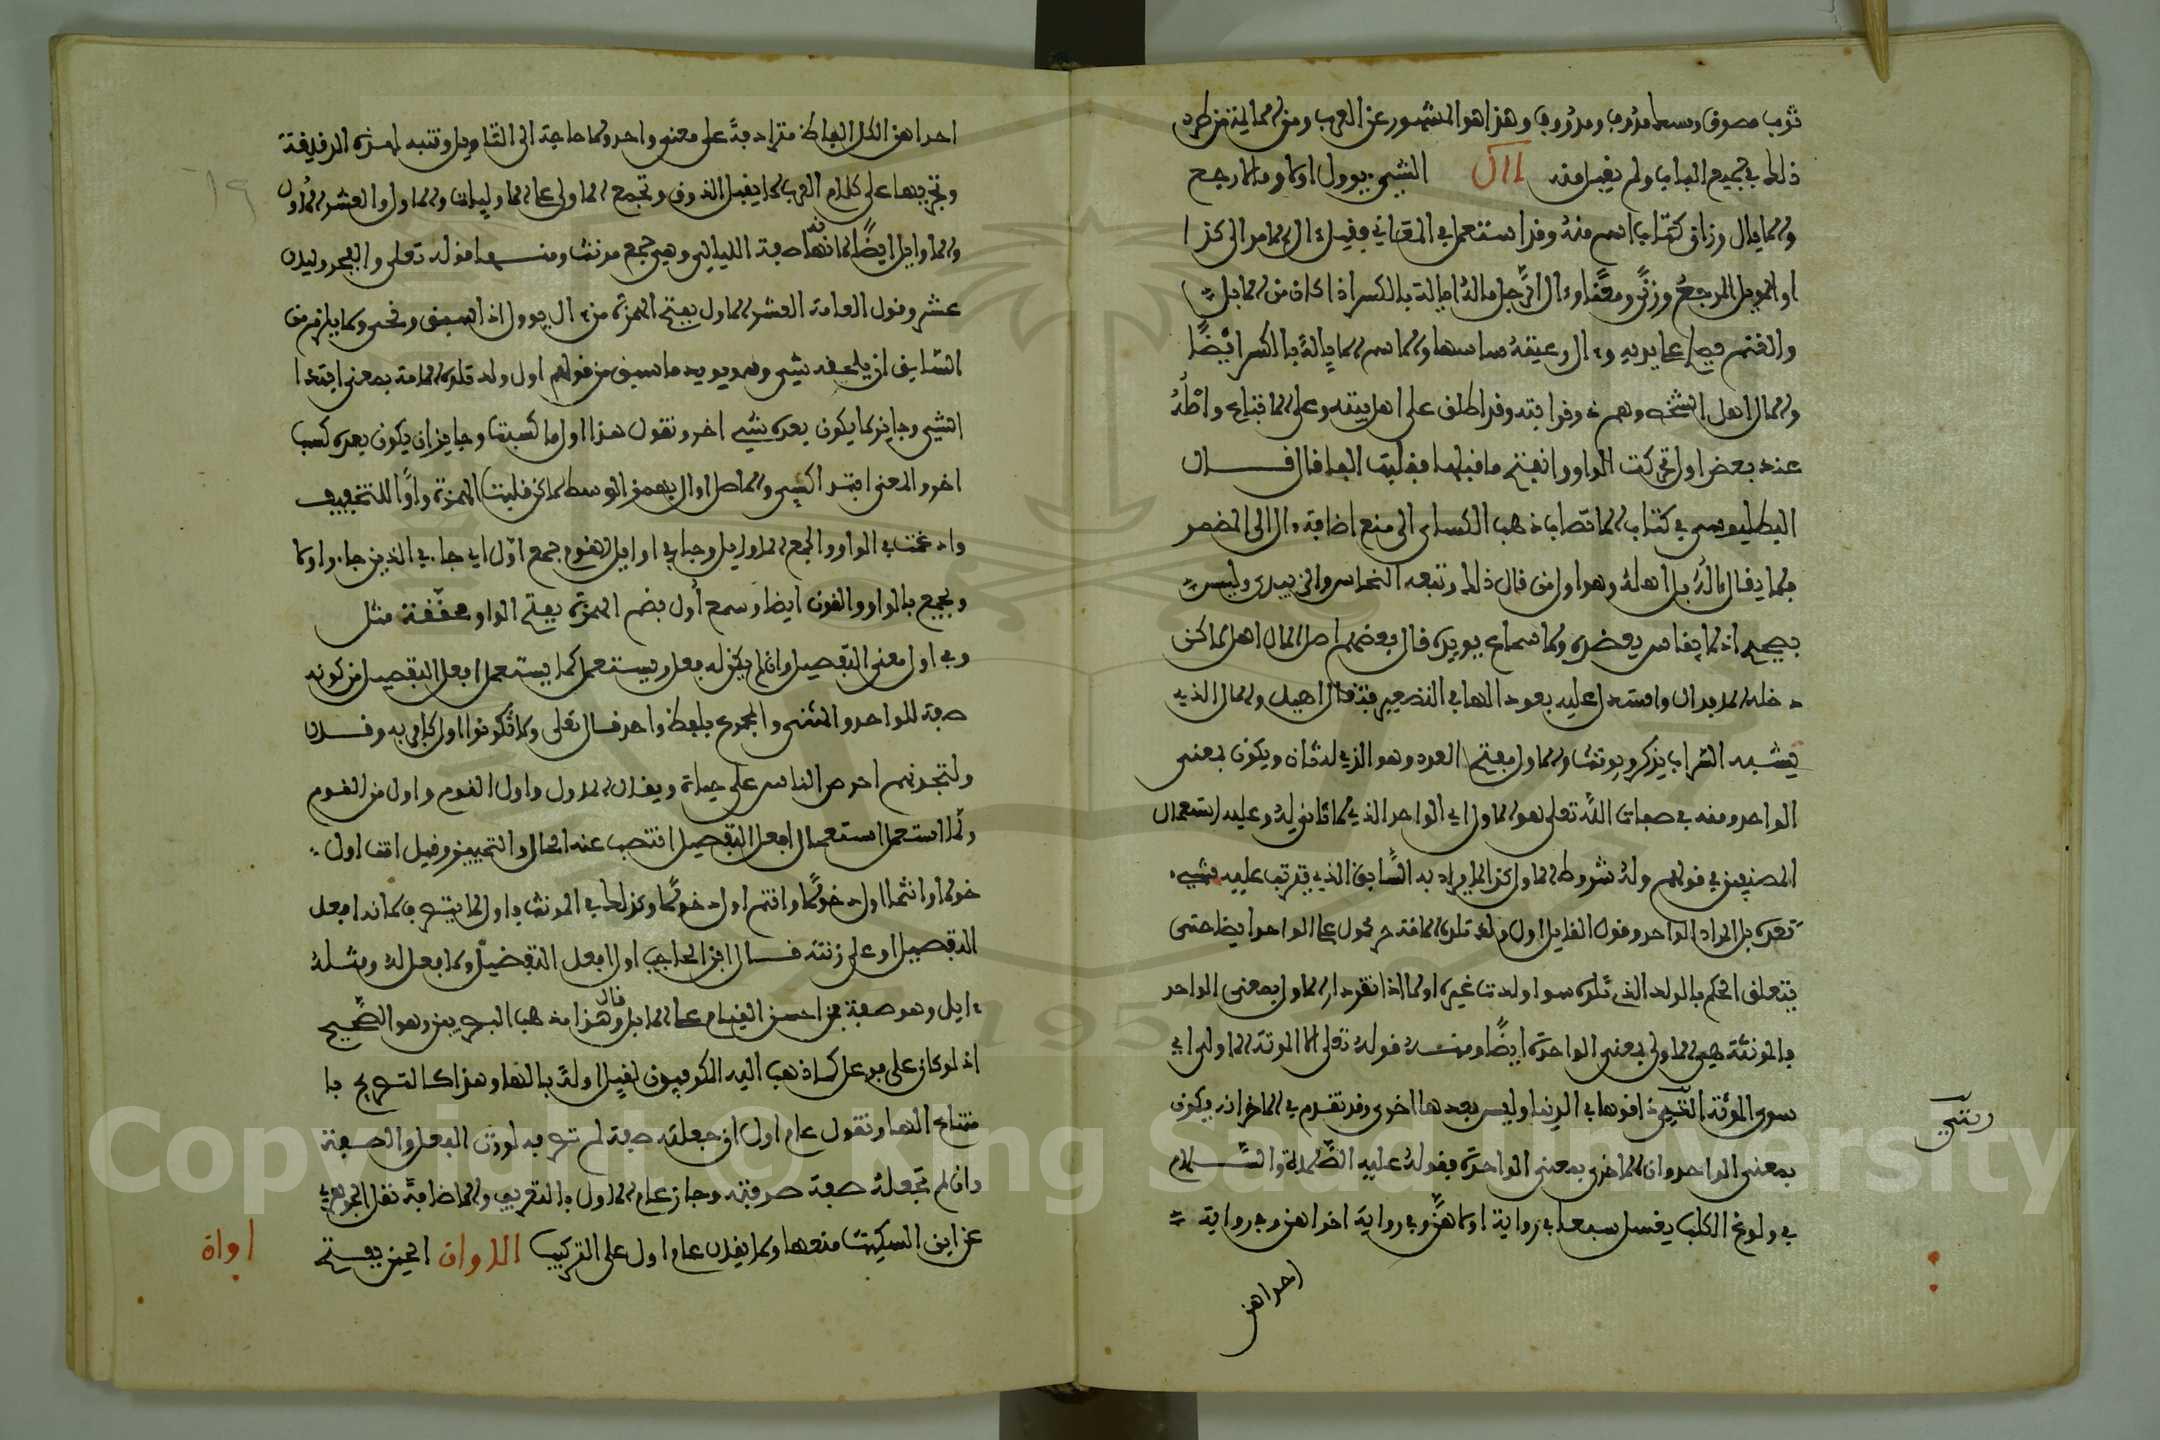 ثوب مصوون ومسك مدووب ومدووف وهذا هو المشهور عن العرب ومن الائمة من طرد
ذلك في جميع الباب ولم يقبل منه ءال الشيء يوول اولا ومالا رجع
والايال وزان كتاب اسم منه وقد استعمل في المعاني فقيل ءال الامر الى كذا
او الموءل المرجع وزنا ومعنى وءال الرجل ماله ايالة بالكسر اذا كان من الابل
والغنم يصلح على يديه وءال رعيته ساسها والاسم الايالة بالكسر ايضا
والال اهل الشخص وهم ذوو قرابته وقد اطلق على اهل بيته وعلى الاتباع واصله
عند بعض اول تحركت الواو وانفتح ما قبلها فقلبت الفا قال قال
البطليوسي في كتاب الاقتضاب ذهب الكساي الى منع اضافة ءال الى المضمر
فلا يقال ءاله بل اهله وهو اول من قال ذلك وتبعه النحاس والزبيدي وليس
بصحيح اذ لا قياس يعضده ولا سماع يويده قال بعضهم اصل الال اهل لاكن
دخله الابدال واستدل عليه بعود الها في التصغير فيقال اهيل والال الذي
يشبه السراب يذكر ويونث والاول مفتتح العدد وهو الذي له ثان ويكون بمعنى
الواحد ومنه في صفات الله تعلى هو الاول اي الواحد الذي لا ثاني له وعليه استعمال
المصنفين في قولهم وله شروط الاول كذا لا يراد به السابق الذي يترتب عليه شيء
بعده بل المراد الواحد وقول القايل اول ولد تلده الامة حر محمول على الواحد ايضا حتى
يتعلق الحكم بالولد الذي تلده سوا ولدت غيره او لا اذا تقرر ان الاول بمعنى الواحد
فالمونثة هي الاولى بمعنى الواحدة ايضا ومنه قوله تعلى الا الموتة الاولى اي
سوى الموتة التي ذاقوها في الدنيا وليس بعدها اخرى وقد تقدم في الاخر انه يكون
بمعنى الواحد وان الاخرى بمعنى الواحدة فقوله عليه الصلاة والسلام
في ولوغ الكلب يغسل سبعا في رواية اولاهن وفي رواية اخراهن وفي رواية
احداهن
احداهن الكل الفاظ مترادفة على معنى واحد ولا حاجة الى التاويل وتنبه لهذه الدقيقة
وتخريجها على كلام العرب لا يقبل الذوق وتجمع الاولى على الاوليات والاول والعشر الاول
والاوايل ايضا لانه صفة الليالي وهي جمع مونث ومنه قوله تعلى والفجر وليال
عشر وقول العامة العشر الاول بفتح الهمزة من ءال يوول اذا سبق وجى ولا يلزم من
السابق ان يلحقه شيء وهو يويد ما سبق من قولهم اول ولد تلده الامة بمعنى ابتدا
الشيء وجايز لا يكون بعده شيء اخر وتقول هذا اول ما كسبت وجايز ان يكون بعده كسب
اخر والمعنى ابتدا الشيء والاصل اوال بهمز الوسط لاكن قلبت الهمزة واوا للتخفيف
وادغمت في الواو والجمع الاوايل وجا في اوايل القوم جمع اول اي جا في الذين جاءوا اولا
ويجمع بالواو والنون ايضا وسمع اول بضم الهمزة بفتح الواو مخففة مثل
وفي اول معنى التفضيل وان لم يكن له فعل ويستعمل كما يستعمل افعل التفضيل من كونه
صفة للواحد والمثنى والمجموع بلفظ واحد قال تعلى ولا تكونوا اول كافر به وقال
ولتجدنهم احرص الناس على حياة ويقال الاول واول القوم واول من القوم
ولما استعمل استعمال افعل التفضيل انتصب عنه الحال والتمييز وقيل انت اول
دخولا وانتما اول دخولا وانتم اول دخولا وكذلك في المونث فاول لا ينصرف لانه افعل
التفضيل او على زنته قال ابن الحاجب اول افعل التفضيل ولا فعل له ومثله
ءابل وهو صفة من احسن القيام على الابل قال وهذا مذهب البصريين وهو الصحيح
اذ لو كان على فوعل كما ذهب اليه الكوفيون لقيل اولة بالها وهذا كالتصريح با
متناع الها وتقول عام اول ان جعلته صفة لم تصرفه لوزن الفعل والصفة
وان لم تجعله صفة صرفته وجاز عام الاول بالتعريف والاضافة نقل الجوهري
عن ابن السكيت منعها ولا يقال عام اول على التركيب الاوان الحين بفتح